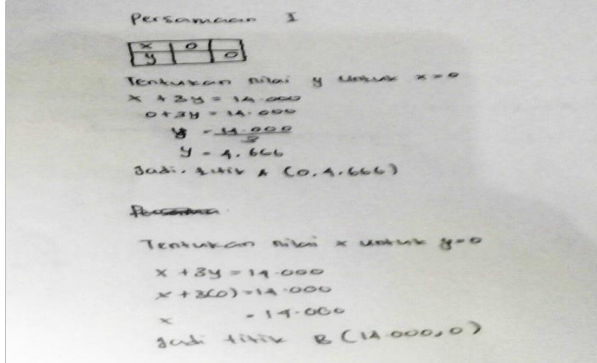 Persamaan I
x 0
y 0
Tentukan nilai y untuk x=0
x + 3y = 14.000
0 + 3y = 14.000
y = 14.000
3
y = 4.666
Jadi, titik A (0, 4.666)
Tentukan nilai x untuk y=0
x + 3y = 14.000
x + 3(0) = 14.000
x = 14.000
Jadi titik B (14.000, 0)